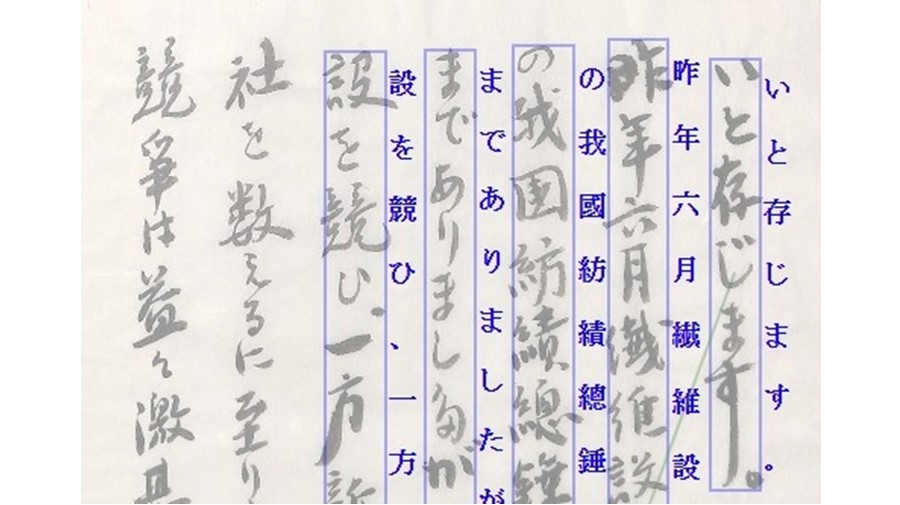 いと存じます。
いと存じます。
昨年六月繊維設
昨年六月繊維設
の我國紡績總錘
の我国紡績總錘
までありましたが
までありましたが
設を競ひ、一方
設を競ひ、一方
社を数えるに至り
競爭は益々激